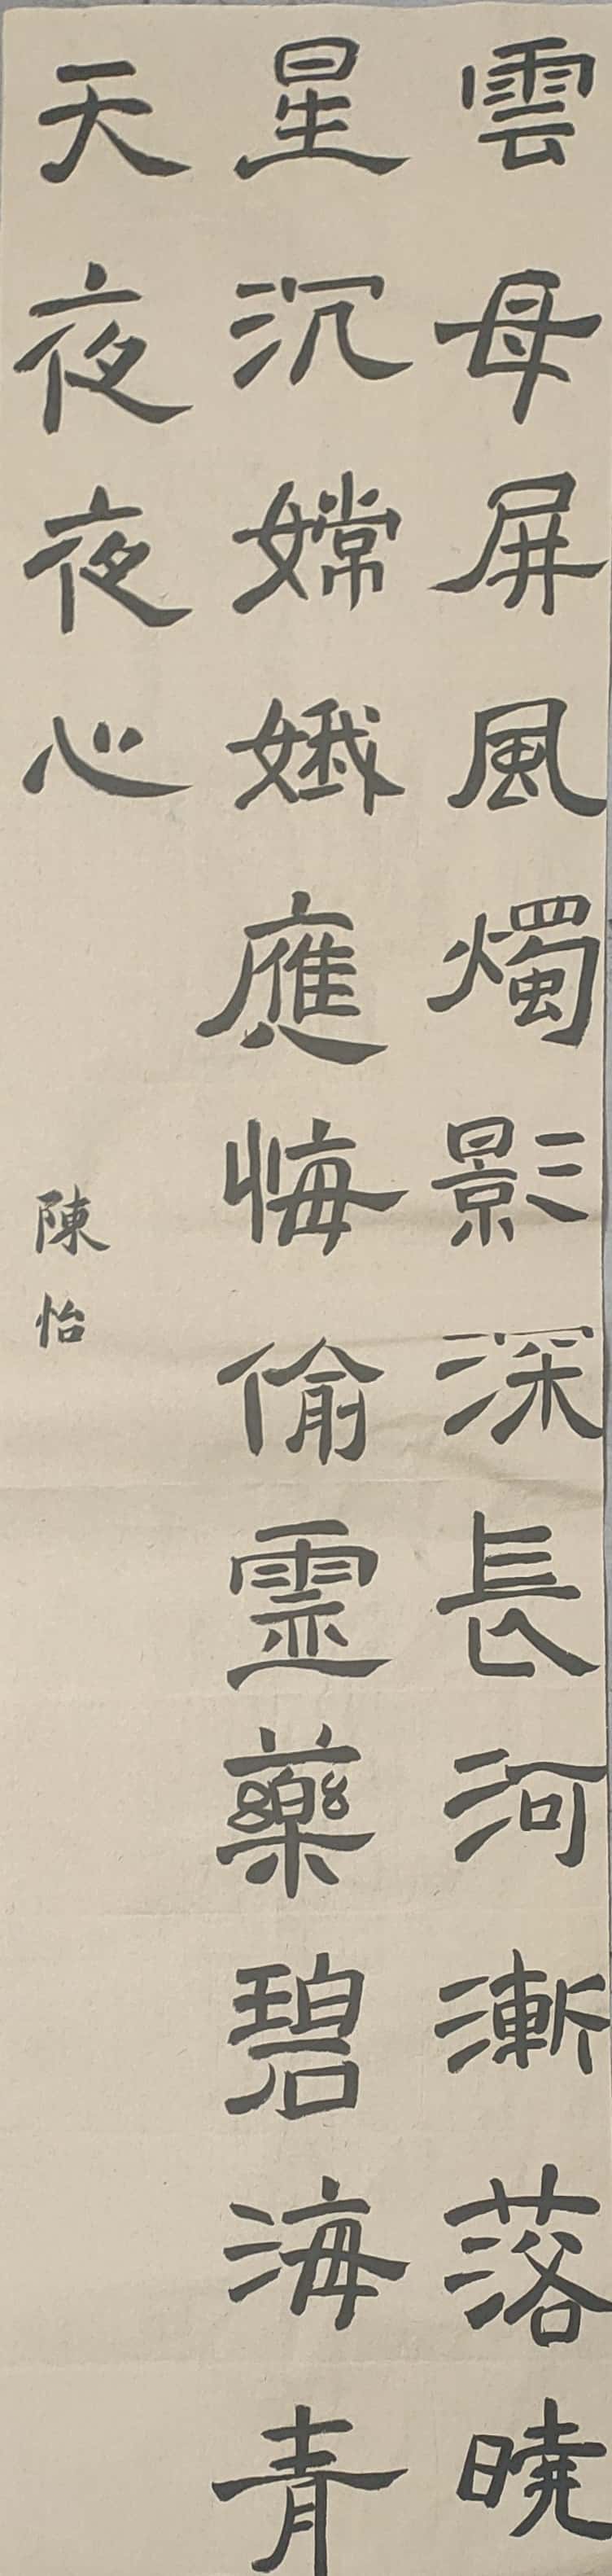 雲母屏風燭影深長河漸落曉
星沉嫦娥應悔偷靈藥碧海青
天夜夜心
陳怡